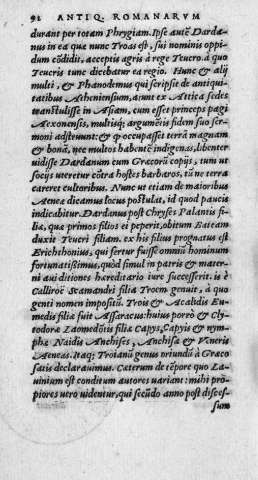 92 ANTIQ. ROMANARVM
durant per totam Phrygiam. Ipse aũt Darda-
nus in ea quæ nunc Troas est, sui nominis oppi-
dum cõdidit, acceptis agris à rege Teucro. à quo
Teucris tunc dicebatur ea regio. Hunc & alij
multi, & Phanodemus qui scripsit de antiqui-
tatibus Atheniensium, aiunt ex Attica sedes
transtulisse in Asiam, cum esset princeps pagi
Axonensis, multisq; argumẽtis fidem suo ser-
moni adstruunt: & ꝙ occupasset terrã magnam
& bonã, nec multos habentẽ indigenas, libenter
uidisse Dardanum cum Græcorũ copijs, tum ut
socijs uteretur cõtra hostes barbaros, tũ ne terra
careret cultoribus. Nunc ut etiam de maioribus
Aeneæ dicamus locus postulat, id quod paucis
indicabitur. Dardanus post Chryses Palantis fi-
liæ, quæ primos filios ei peperit, obitum Bateam
duxit Teucri filiam. ex his filius prognatus est
Erichthonius, qui fertur fuisse omniũ hominum
fortunatissimus, quòd simul in patris & mater-
ni aui ditiones hereditario iure successerit. is è
Calliroë Scamandri filia Troem genuit, à quo
genti nomen impositũ. Trois & Acalidis Eu-
medis filiæ fuit Assaracus: huius porrò & Cly-
todoræ Laomedõtis filiæ Capys, Capyis & nym-
phæ Naidis Anchises, Anchisæ & Veneris
Aeneas. Itaq; Troianũ genus oriundũ à Græco
satis declarauimus. Cæterum de tẽpore quo La-
uinium est conditum autores uariant: mihi prò
piores uero uidentur, qui secũdo anno post disces-
sum